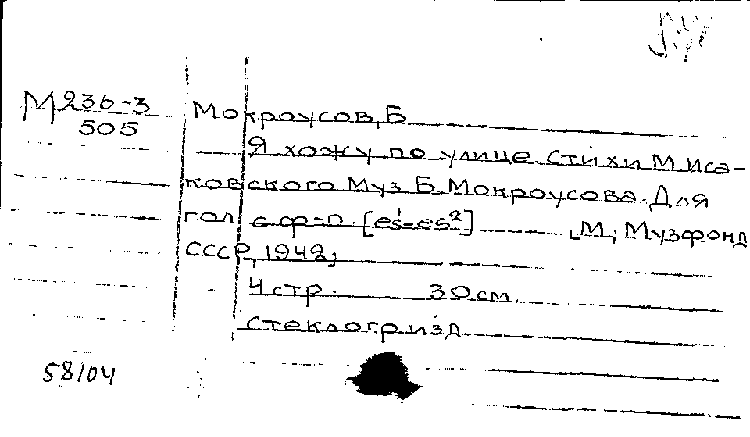 М 236-3
505
Мокроусов, Б
Я хожу по улице Стихи М Иса-
ковского Муз Б Мокроусова. Для
гол с ф-п. [es¹-es²] М, Музфонд
СССР, 1942,
4 стр. 30 см.
Стеклогр изд
58/04